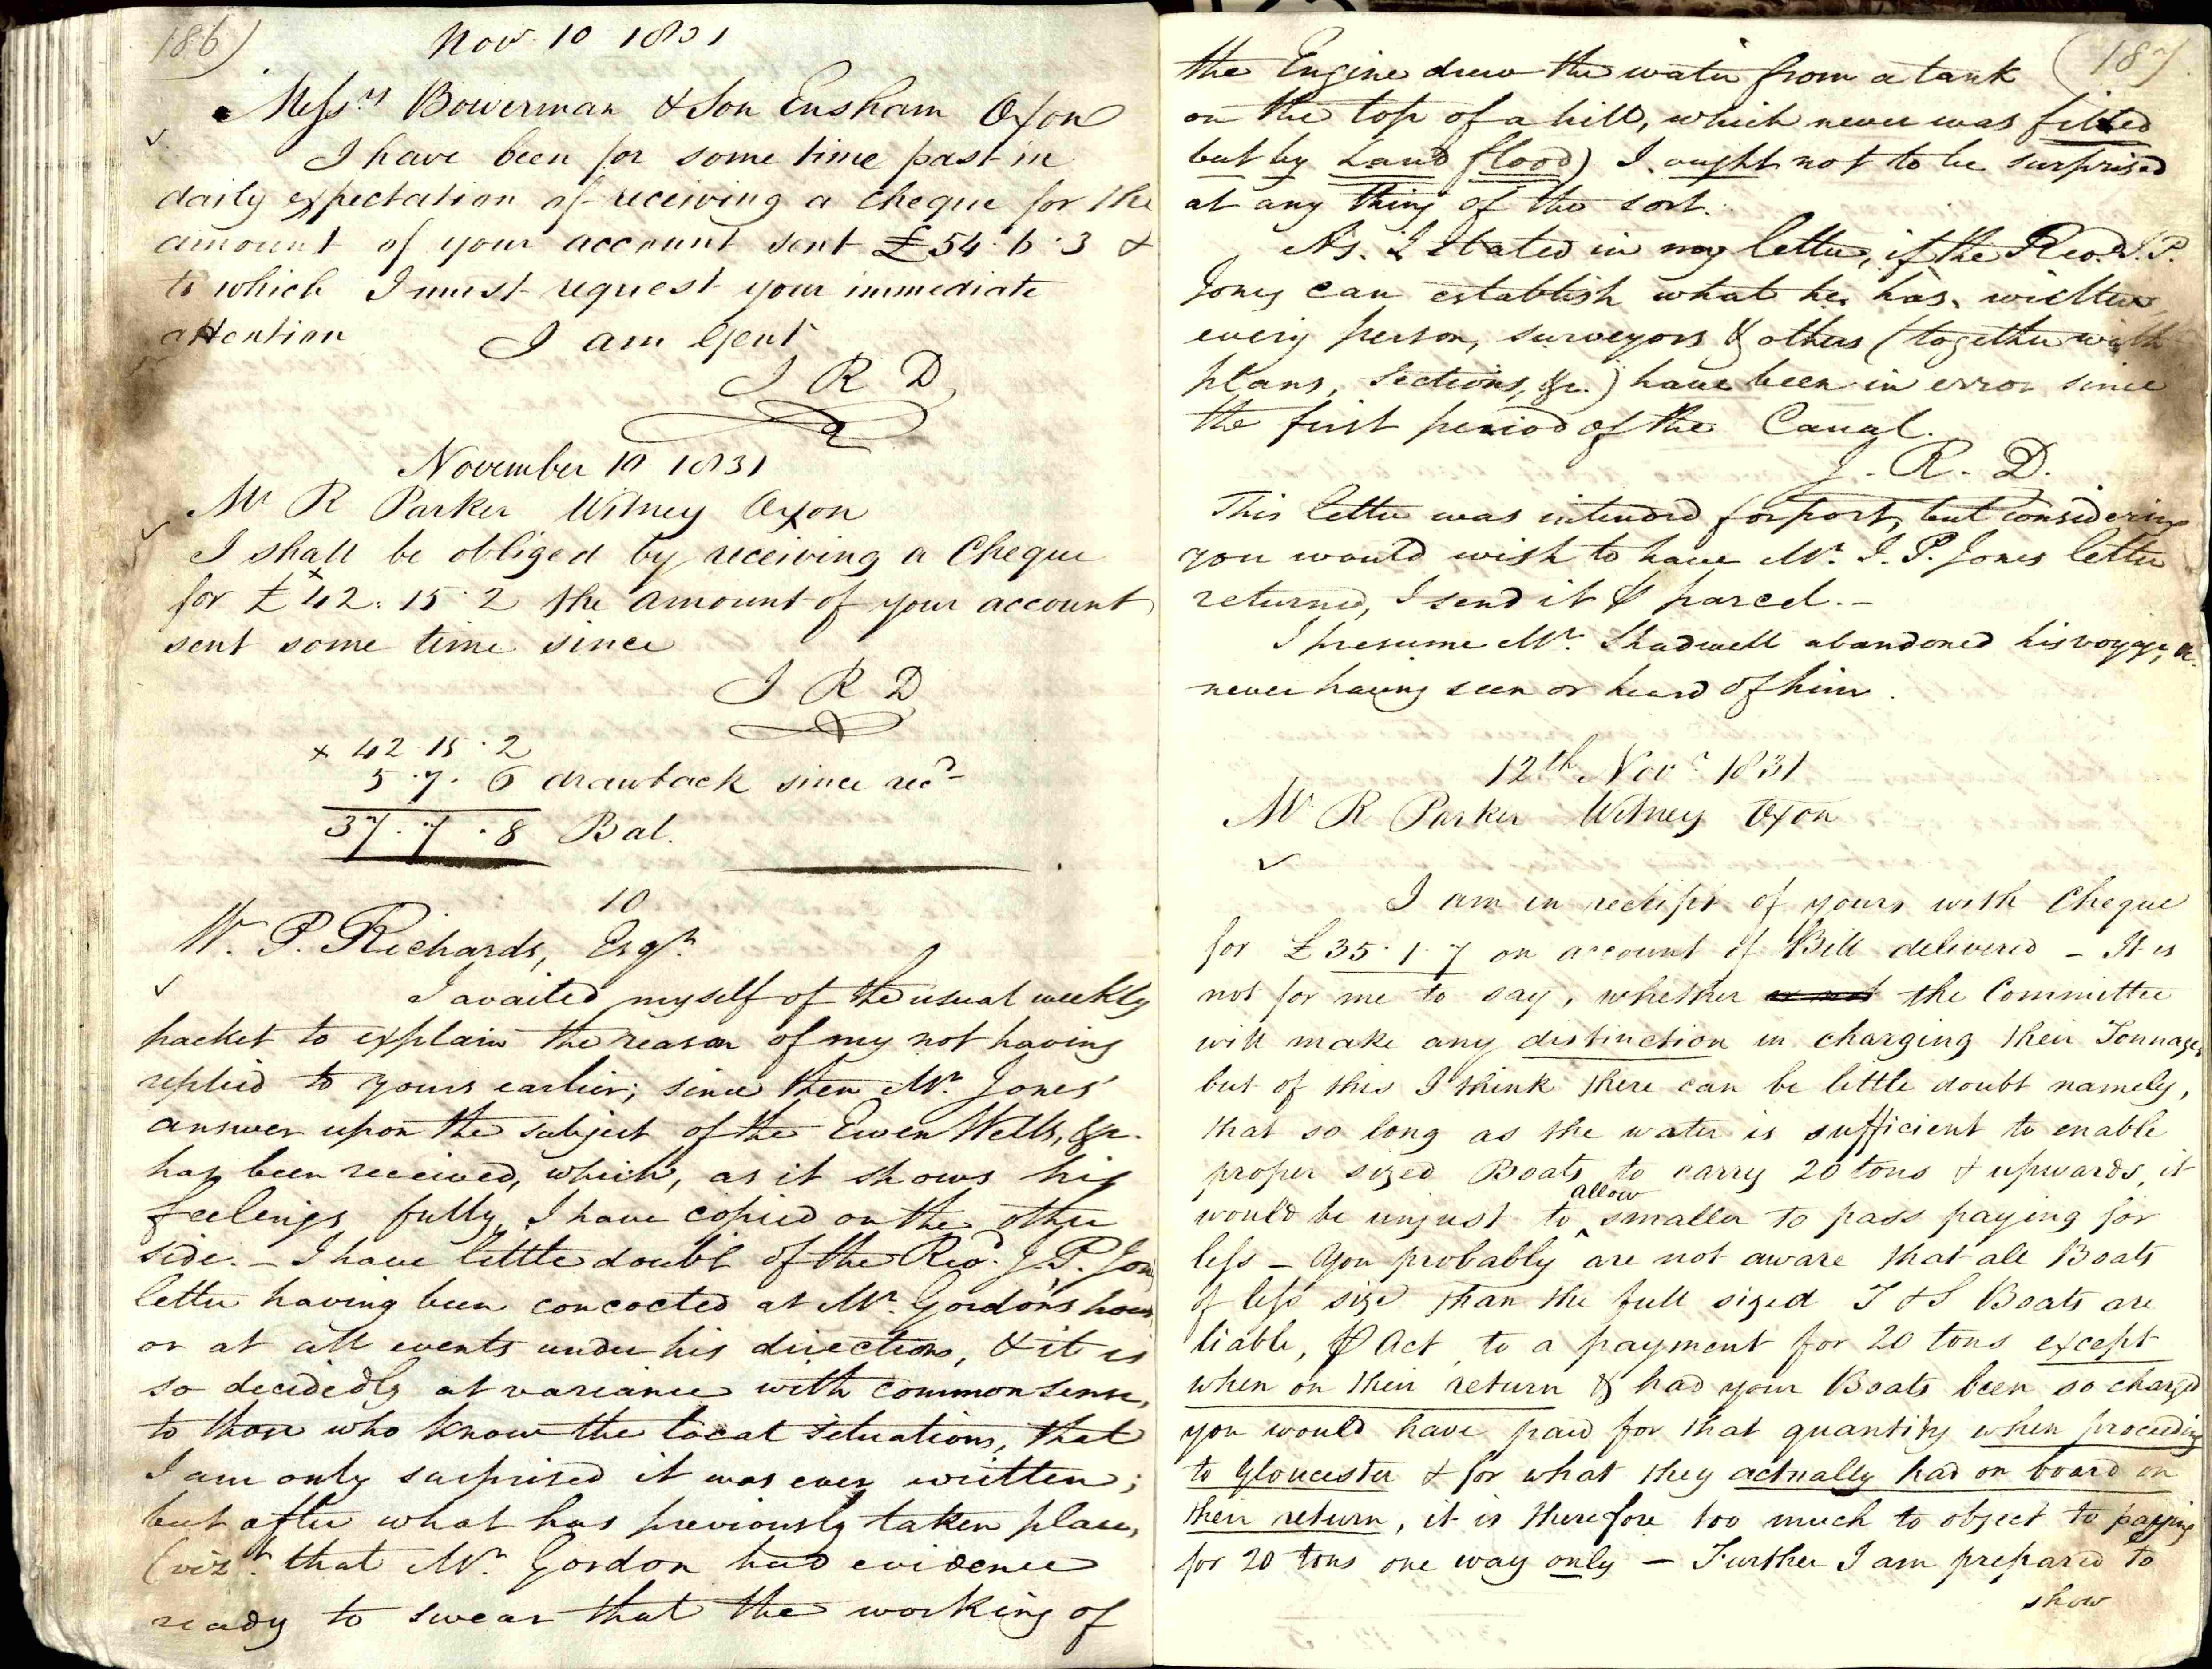 186)
Nov. 10 1831
Messrs Bowerman & Son Ensham Oxon
I have been for some time past in
daily expectation of receiving a cheque for the
amount of your account sent £54·6·3 &
to which I must request your immediate
attention I am Gent
J R D
November 10 1831
Mr R Parker Witney Oxon
I shall be obliged by receiving a Cheque
for £ˣ42.15.2 the amount of your account
sent some time since
J R D
x 42.15.2
5.7.6 drawback since recd
37.7.8 Bal.
10
W. P. Richards, Esqr.
I availed myself of the usual weekly
packet to explain the reason of my not having
replied to yours earlier; since then Mr. Jones'
answer upon the subject of the Ewen Wells, &c.
has been received, which, as it shows his
feelings fully, I have copied on the other
side. – I have little doubt of the Revd. J. P. Jon
letter having been concocted at Mr. Gordon's hous
or at all events under his direction, & it is
so decidedly at variance with common sense,
to those who know the local situations, that
I am only surprised it was ever written;
but after what has previously taken place,
(vizt. that Mr. Gordon had evidence
ready to swear that the working of
(187
the Engine drew the water from a tank
on the top of a hill, which never was filled
but by Land flood) I ought not to be surprised
at any thing of the sort.
As I stated in my letter, if the Revd. J. P.
Jones can establish what he has written
every person, surveyors & others (together with
plans, sections, &c.) have been in error since
the first period of the Canal.
J. R. D.
This letter was intended for post, but considering
you would wish to have Mr. J. P. Jones letter
returned, I send it ⅌ parcel. –
I presume Mr. Shadwell abandoned his voyage,
never having seen or heard of him.
12th Novr 1831
Mr R Parker Witney Oxon
I am in receipt of yours with Cheque
for £35.1.7 on account of Bill delivered – It is
not for me to say, whether or not the Committee
will make any distinction in charging their Tonnages
but of this I think there can be little doubt namely,
that so long as the water is sufficient to enable
proper sized Boats to carry 20 tons & upwards, it
would be unjust to ^allow smaller to pass paying for
less – You probably are not aware that all Boats
of less size than the full sized T & S Boats are
liable, ⅌ Act, to a payment for 20 tons except
when on their return & had your Boats been so charged
you would have paid for that quantity when proceeding
to Gloucester & for what they actually had on board on
their return, it is therefore too much to object to paying
for 20 tons one way only – Further I am prepared to
show